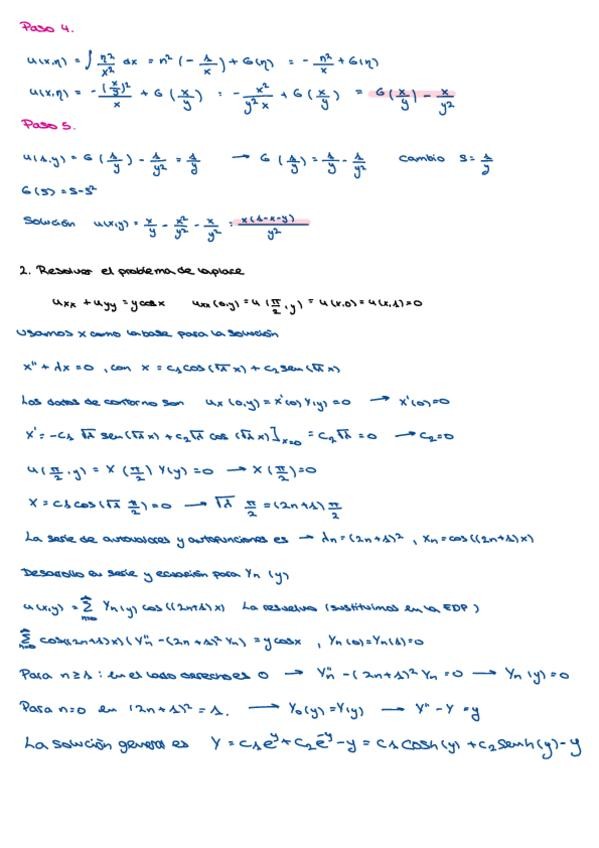 Paso 4.
u(x,η) = ∫ η²/x² dx = η² (- 1/x) + G(η) = - η²/x + G(η)
u(x,η) = - (x/y)²/x + G (x/y) = - x²/y²x + G (x/y) = G (x/y) - x/y²
Paso 5.
u(1,y) = G (1/y) - 1/y² = 1/y → G (1/y) = 1/y - 1/y² cambio s = 1/y
G(s) = s-s²
Solución u(x,y) = x/y - x²/y² - x/y² = x(1-x-y)/y²
2. Resolver el problema de laplace
uxx + uyy = y cosx uxx (0,y) = u (π/2, y) = u(x,0) = u(x,1) = 0
Usamos x como la base para la solución
x'' + λx = 0, con x = c1 cos(√λ x) + c2 sen(√λ x)
Los datos de contorno son ux (0,y) = x'(0) Y(y) = 0 → x'(0) = 0
x' = -c1 √λ sen(√λ x) + c2 √λ cos (√λ x)]x=0 = c2√λ = 0 → c2 = 0
u(π/2, y) = X (π/2) Y(y) = 0 → X (π/2) = 0
X = c1 cos(√λ π/2) = 0 → √λ π/2 = (2n+1) π/2
La serie de autovalores y autofunciones es → λn = (2n+1)², Xn = cos((2n+1)x)
Desarrollo en serie y ecuación para Yn (y)
u(x,y) = ∑ Yn(y) cos((2n+1)x) La resuelvo (sustituimos en la EDP)
∑ cos((2n+1)x) (Y''n - (2n+1)² Yn) = y cosx, Yn(0) = Yn(1) = 0
Para n≥1: en el lado derecho es 0 → Y''n - (2n+1)² Yn = 0 → Yn(y) = 0
Para n=0 en (2n+1)² = 1. → Y0(y) = Y(y) → Y'' - Y = y
La solución general es Y = c1e^y + c2e^-y - y = c1 cosh(y) + c2 senh(y) - y